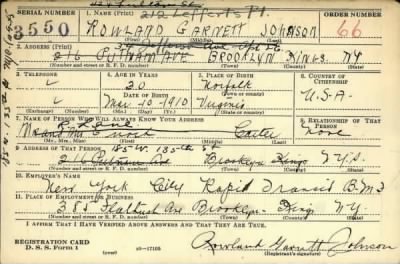 212 Lefferts Pl.
SERIAL NUMBER 1. NAME (Print) ORDER NUMBER
3550 ROWLAND GARNETT JOHNSON 66
(First) (Middle) (Last)
2. ADDRESS (Print)
216 PUTNAM AVE BROOKLYN KINGS NY
(Number and street or R. F. D. number) (Town) (County) (State)
3. TELEPHONE 4. AGE IN YEARS 5. PLACE OF BIRTH 6. COUNTRY OF CITIZENSHIP
Norfolk
DATE OF BIRTH
Mar. 10-1910 Virginia U.S.A.
(Exchange) (No.) (Mo.) (Day) (Yr.) (Town or county) (State or country)
7. NAME OF PERSON WHO WILL ALWAYS KNOW YOUR ADDRESS 8. RELATIONSHIP OF THAT PERSON
Carter None
(Mr., Mrs., Miss) (First) (Middle) (Last)
9. ADDRESS OF THAT PERSON 185 W. 135th St
216 Putnam Ave Brooklyn Kings N.Y.
(Number and street or R. F. D. number) (Town) (County) (State)
10. EMPLOYER'S NAME
New York City Rapid Transit B.M.T
11. PLACE OF EMPLOYMENT OR BUSINESS
385 Flatbush Ave Brooklyn Kings N.Y.
(Number and street or R. F. D. number) (Town) (County) (State)
I AFFIRM THAT I HAVE VERIFIED ABOVE ANSWERS AND THAT THEY ARE TRUE.
REGISTRATION CARD
D. S. S. Form 1 16-17105 Rowland Garnett Johnson
(Registrant's signature)
185 W. 135th St